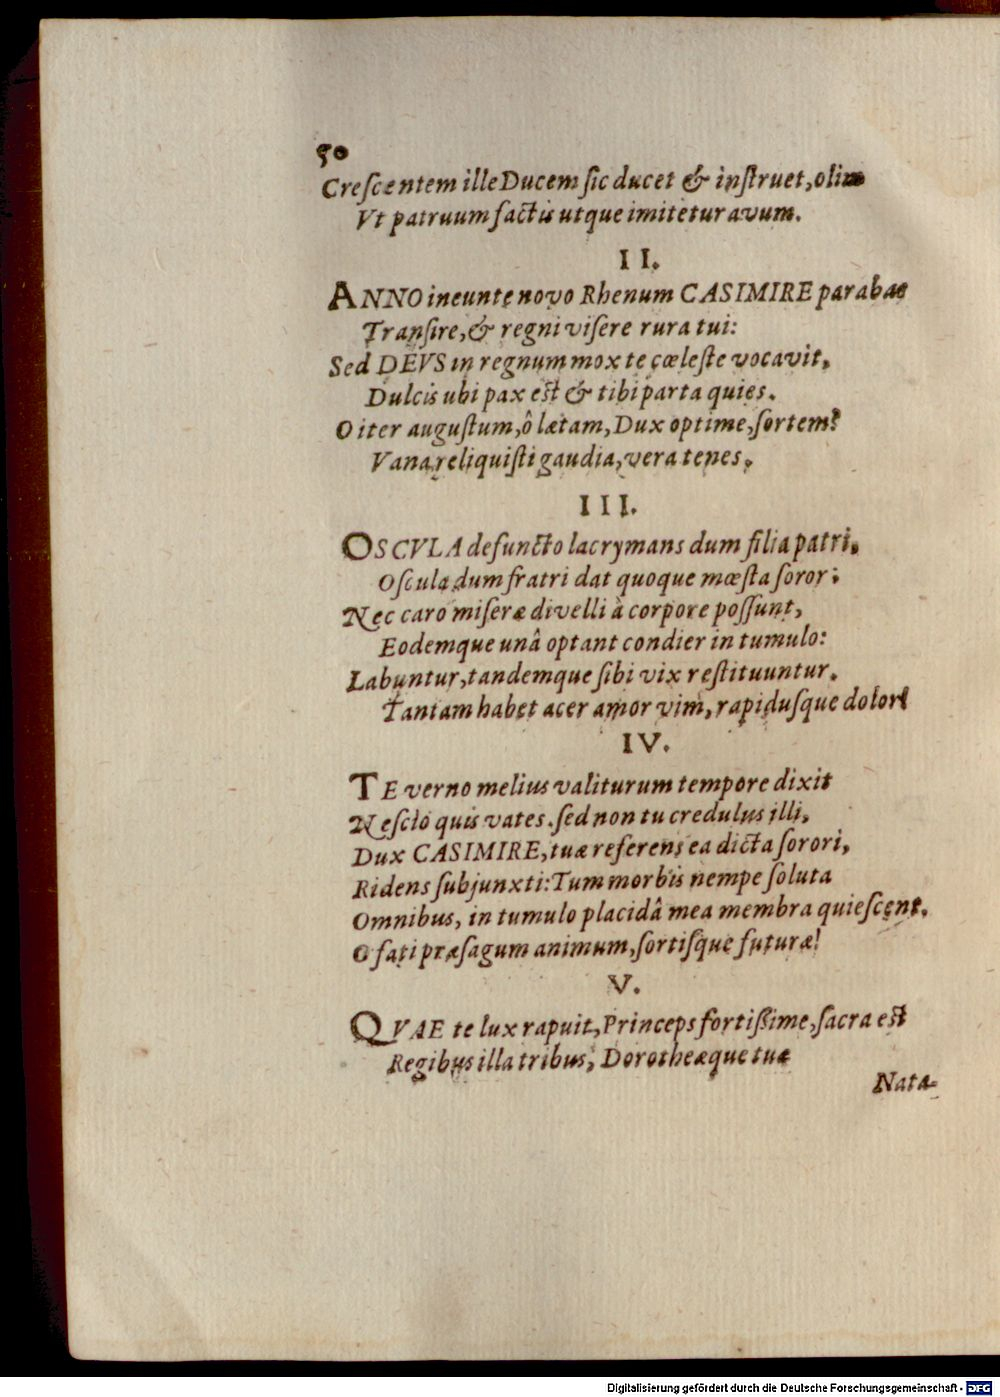 50
Creſcentem ille Ducem ſic ducet & inſtruet, olim
Vt patruum factis utque imitetur avum.
II.
ANNO ineunte novo Rhenum CASIMIRE parabas
Tranſire, & regni viſere rura tui:
Sed DEVS in regnum mox te cæleſte vocavit,
Dulcis ubi pax est & tibi parta quies.
O iter auguſtum, ô lætam, Dux optime, ſortem!
Vana reliquiſti gaudia, vera tenes.
III.
OSCVLA defuncto lacrymans dum filia patri,
Oſcula dum fratri dat quoque mœſta ſoror;
Nec caro miſeræ divelli à corpore poſſunt,
Eodemque unâ optant condier in tumulo:
Labuntur, tandemque ſibi vix reſtituuntur.
Tantam habet acer amor vim, rapiduſque dolor!
IV.
TE verno melius valiturum tempore dixit
Neſcio quis vates. ſed non tu credulus illi,
Dux CASIMIRE, tuæ referens ea dicta ſorori,
Ridens ſubjunxti: Tum morbis nempe ſoluta
Omnibus, in tumulo placidâ mea membra quieſcent.
O fati præſagum animum, ſortiſque futuræ!
V.
QVAE te lux rapuit, Princeps fortiſſime, ſacra est
Regibus illa tribus, Dorotheæque tuæ
Nata-
Digitalisierung gefördert durch die Deutsche Forschungsgemeinschaft - DFG